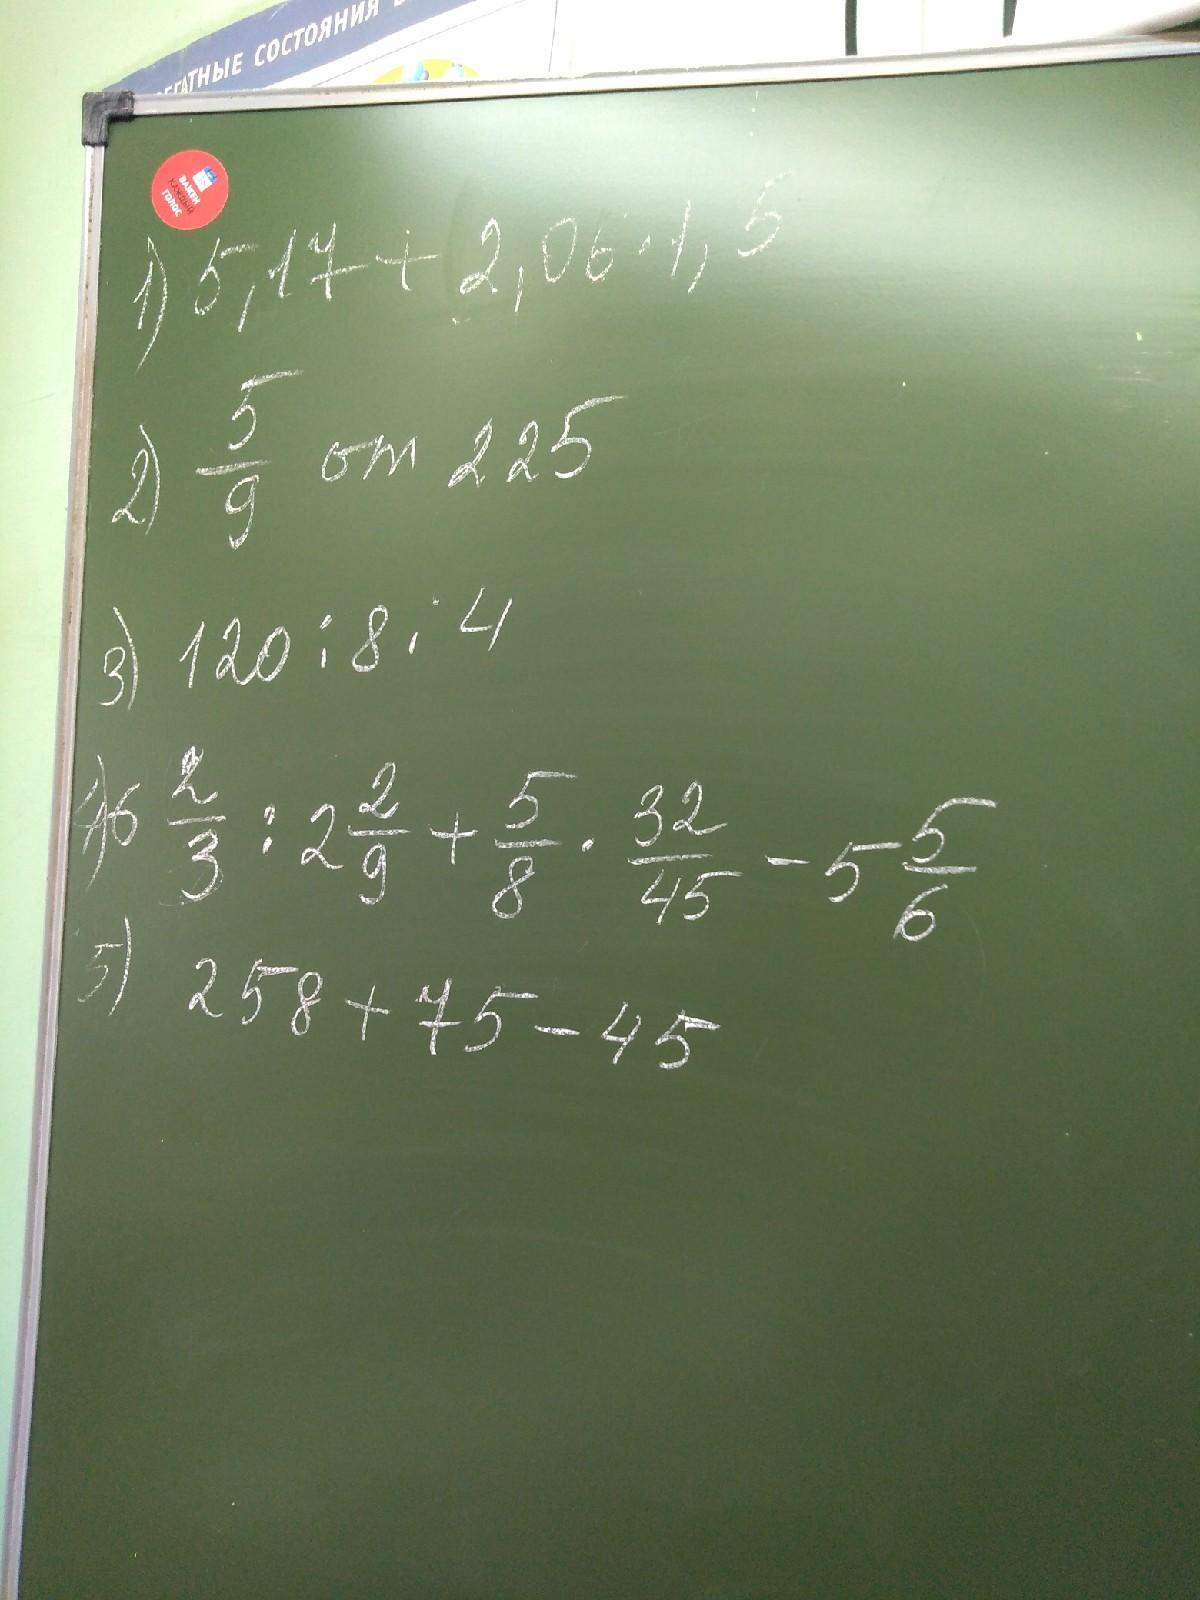 АГРЕГАТНЫЕ СОСТОЯНИЯ
ВАЖЕН
КАЖДЫЙ
ГОЛОС
1) 5,17 + 2,06 · 1,5
2) 5/9 от 225
3) 120 : 8 : 4
4) 6 2/3 : 2 2/9 + 5/8 · 32/45 - 5 5/6
5) 258 + 75 - 45